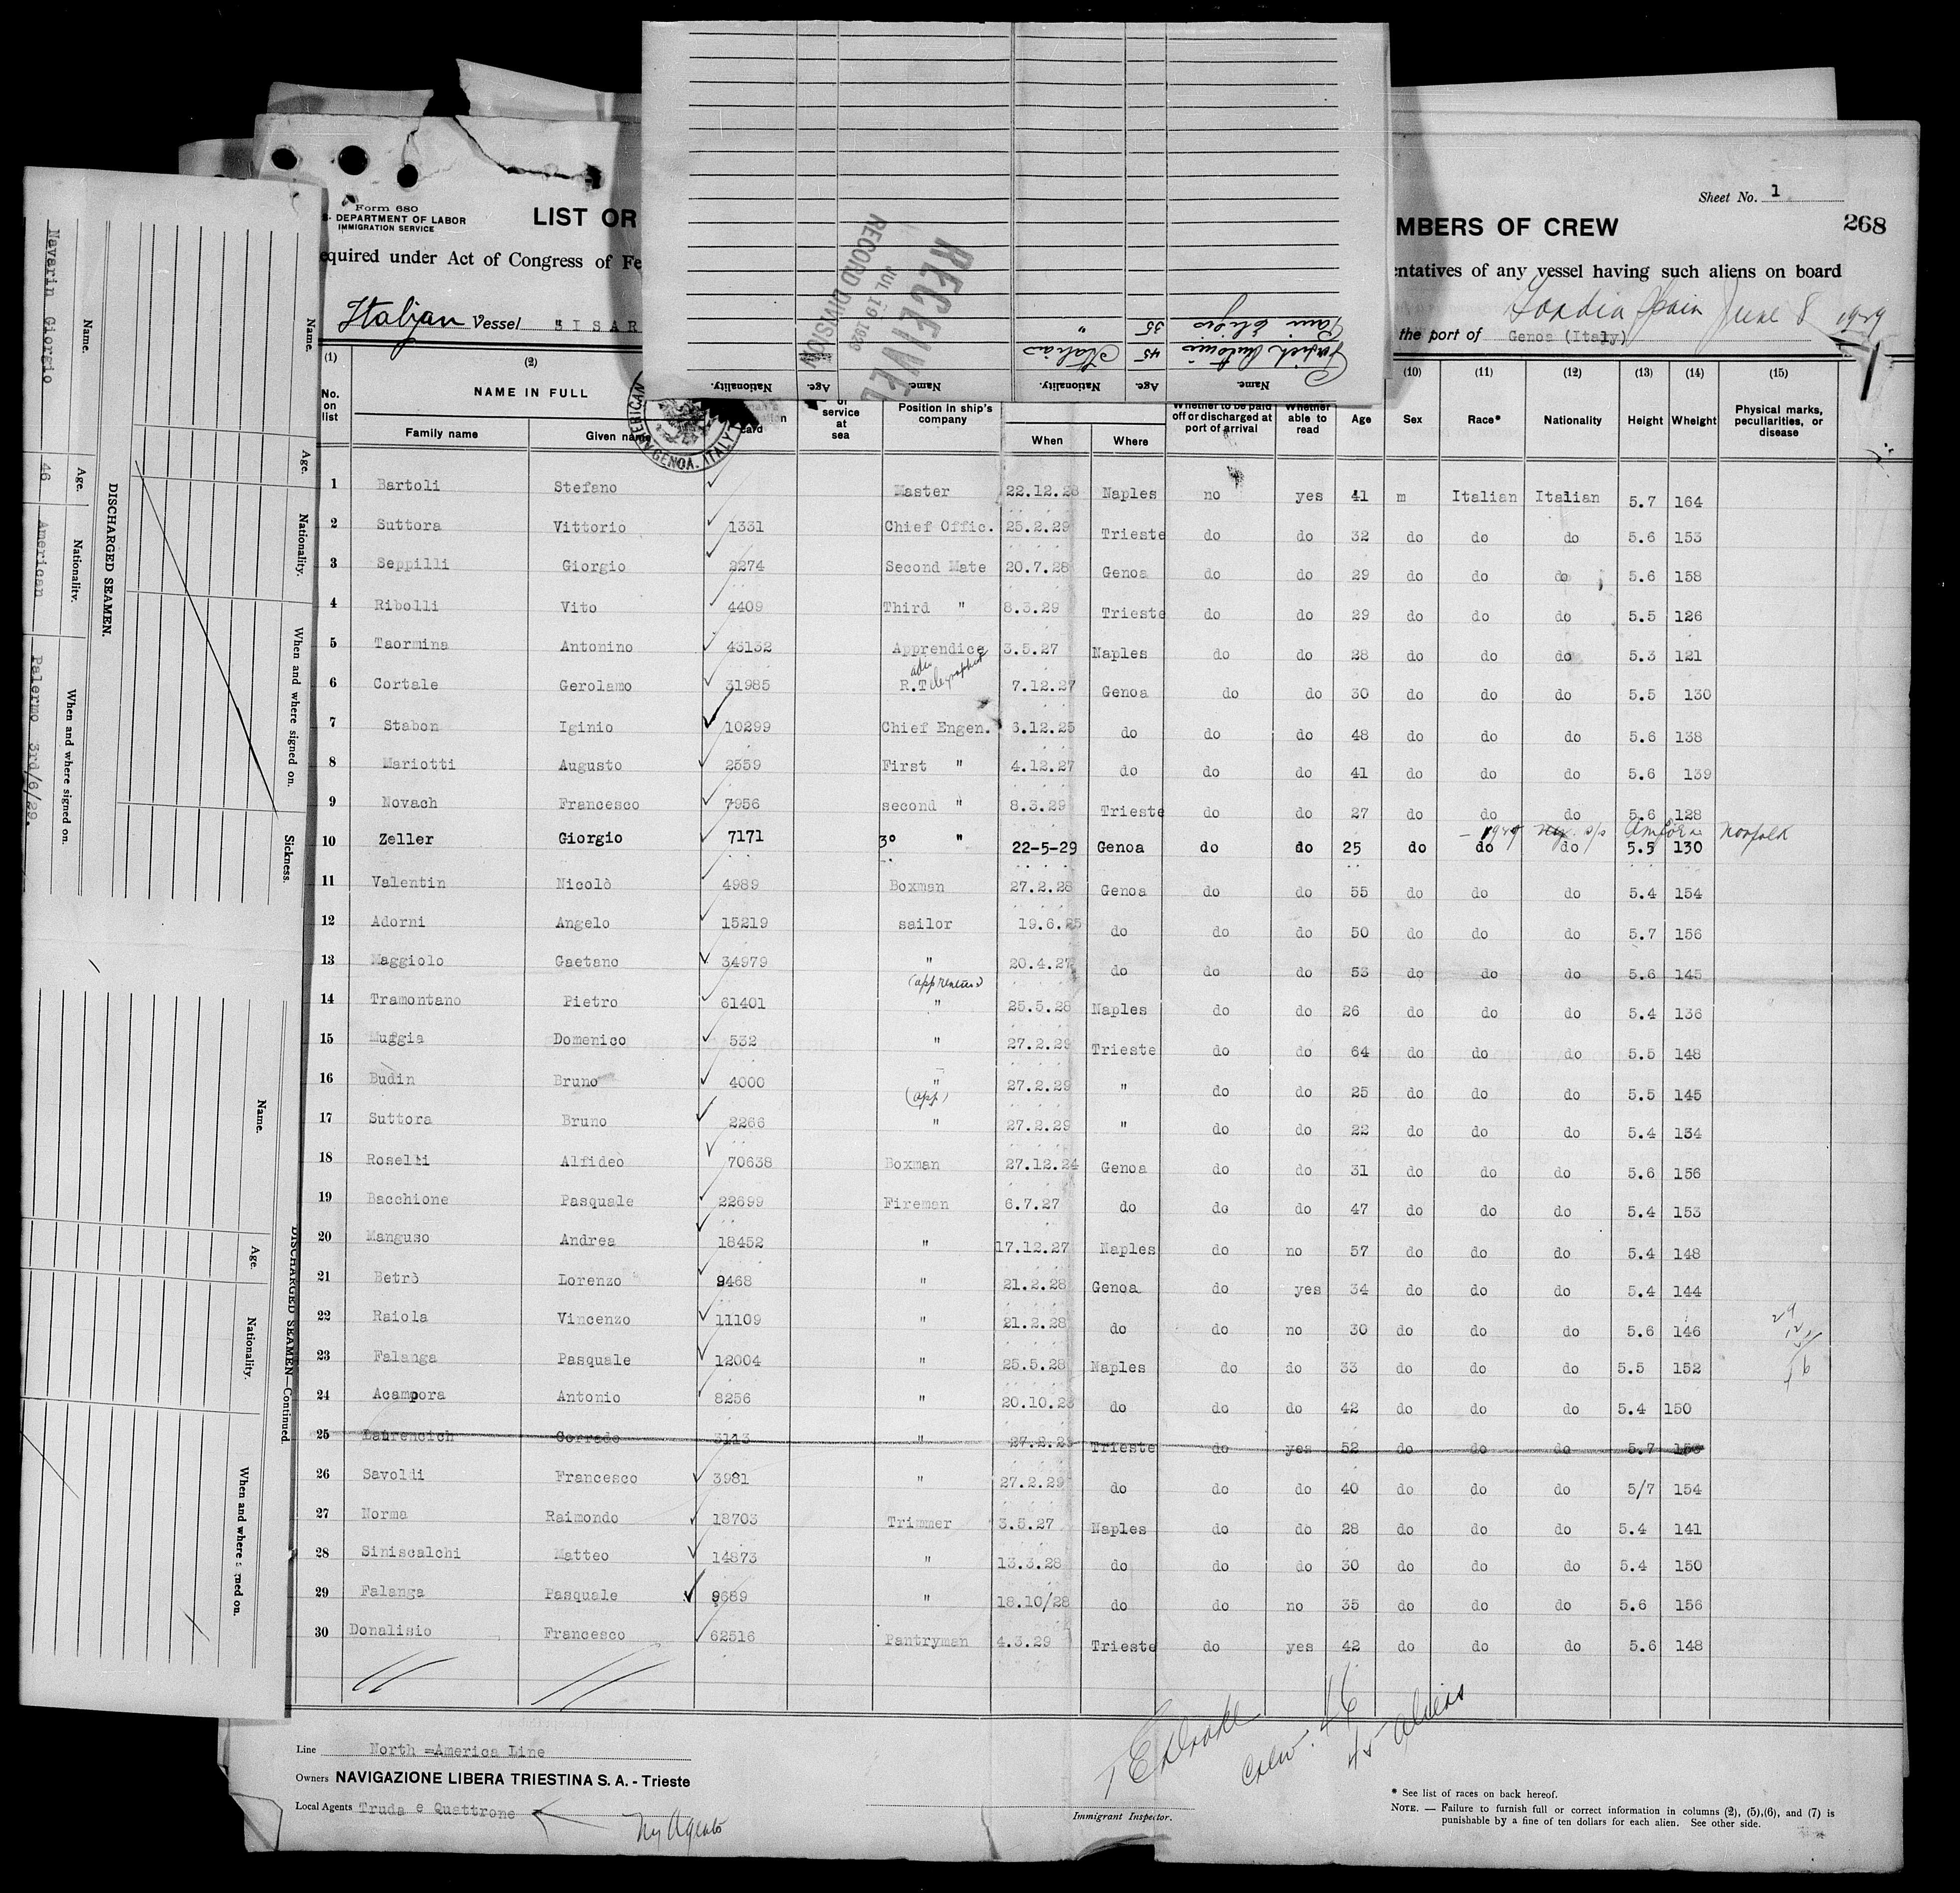 Sheet No. 1
268
Form 680
DEPARTMENT OF LABOR
IMMIGRATION SERVICE
LIST OR
MBERS OF CREW
equired under Act of Congress of Fe
ntatives of any vessel having such aliens on board
Italian Vessel "ISAR
Spain June 8 1929
the port of Genoa (Italy)
RECEIVED
JUL 19 1929
RECORD DIVISION
Name. Age. Nationality. Name. Age. Nationality.
Antonio 45 Italian
35 "
AMERICAN
GENOA. ITALY
(1) (2) (10) (11) (12) (13) (14) (15)
No. on list
NAME IN FULL
Family name Given name
card
of service at sea
Position in ship's company
When Where
Whether to be paid off or discharged at port of arrival
Whether able to read
Age Sex Race* Nationality Height Wheight
Physical marks, peculiarities, or disease
1 Bartoli Stefano Master 22.12.28 Naples no yes 41 m Italian Italian 5.7 164
2 Suttora Vittorio 1331 Chief Offic. 25.2.29 Trieste do do 32 do do do 5.6 153
3 Seppilli Giorgio 2274 Second Mate 20.7.28 Genoa do do 29 do do do 5.6 158
4 Ribolli Vito 4409 Third " 8.3.29 Trieste do do 29 do do do 5.5 126
5 Taormina Antonino 43132 Apprendice 3.5.27 Naples do do 28 do do do 5.3 121
6 Cortale Gerolamo 31985 R.Telegraphist 7.12.27 Genoa do do 30 do do do 5.5 130
7 Stabon Iginio 10299 Chief Engen. 6.12.25 do do do 48 do do do 5.6 138
8 Mariotti Augusto 2559 First " 4.12.27 do do do 41 do do do 5.6 139
9 Novach Francesco 7956 second " 8.3.29 Trieste do do 27 do do do 5.6 128
1929 s/s Norfolk
10 Zeller Giorgio 7171 3° " 22-5-29 Genoa do do 25 do do do 5.5 130
11 Valentin Nicolò 4989 Boxman 27.2.28 Genoa do do 55 do do do 5.4 154
12 Adorni Angelo 15219 sailor 19.6.25 do do do 50 do do do 5.7 156
13 Maggiolo Gaetano 34979 " 20.4.27 do do do 53 do do do 5.6 145
14 Tramontano Pietro 61401 " 25.5.28 Naples do do 26 do do do 5.4 136
15 Muggia Domenico 532 " 27.2.29 Trieste do do 64 do do do 5.5 148
16 Budin Bruno 4000 " (app) 27.2.29 " do do 25 do do do 5.5 145
17 Suttora Bruno 2266 " 27.2.29 " do do 22 do do do 5.4 134
18 Roselli Alfideo 70638 Boxman 27.12.24 Genoa do do 31 do do do 5.6 156
19 Bacchione Pasquale 22699 Fireman 6.7.27 do do do 47 do do do 5.4 153
20 Manguso Andrea 18452 " 17.12.27 Naples do no 57 do do do 5.4 148
21 Betrò Lorenzo 9468 " 21.2.28 Genoa do yes 34 do do do 5.4 144
22 Raiola Vincenzo 11109 " 21.2.28 do do no 30 do do do 5.6 146
23 Falanga Pasquale 12004 " 25.5.28 Naples do do 33 do do do 5.5 152
24 Acampora Antonio 8256 " 20.10.28 do do do 42 do do do 5.4 150
25 Laurencich Corrado 3113 " 27.2.29 Trieste do yes 52 do do do 5.7
26 Savoldi Francesco 3981 " 27.2.29 do do do 40 do do do 5/7 154
27 Norma Raimondo 18703 Trimmer 3.5.27 Naples do do 28 do do do 5.4 141
28 Siniscalchi Matteo 14873 " 13.3.28 do do do 30 do do do 5.4 150
29 Falanga Pasquale 9689 " 18.10/28 do do no 35 do do do 5.6 156
30 Donalisio Francesco 62516 Pantryman 4.3.29 Trieste do yes 42 do do do 5.6 148
Crew. 46
45 aliens
Line North =America Line
Owners NAVIGAZIONE LIBERA TRIESTINA S. A. - Trieste
Local Agents Truda e Quattrone
Ny Agents
Immigrant Inspector.
* See list of races on back hereof.
NOTE. — Failure to furnish full or correct information in columns (2), (5),(6), and (7) is
punishable by a fine of ten dollars for each alien. See other side.
Name. Age. Nationality. When and where signed on. Sickness.
DISCHARGED SEAMEN.
Name. Age. Nationality. When and where signed on.
Navarin Giorgio 46 American Palermo 3rd/6/29.
DISCHARGED SEAMEN—Continued.
Name. Age. Nationality. When and where s ned on.